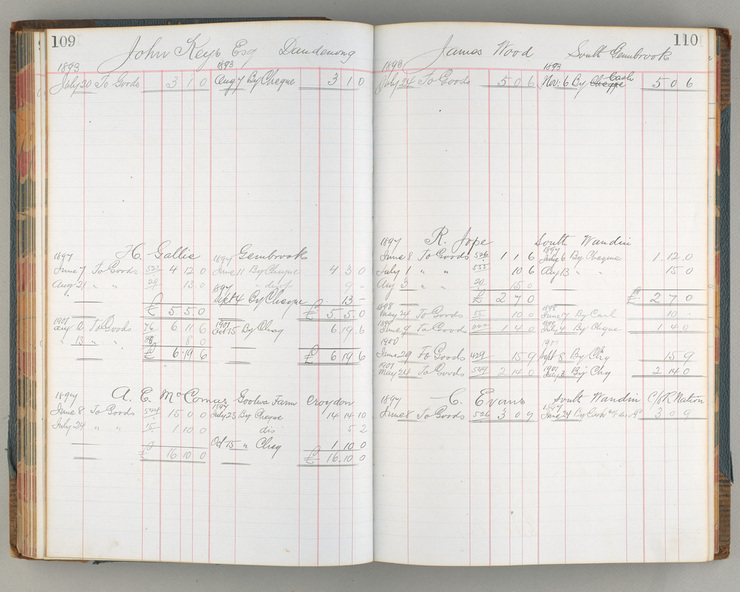 109
John Keys Esq Dandenong
1893 1893
July 20 To Goods 3 1 0 Aug 7 By Cheque 3 1 0
1897 H. Gallie 1897 Gembrook
June 7 To Goods 4 12 0 June 11 By Cheque 4 3 0
Aug 21 " " 29 13 0 9 -
1897
Sept 4 By Cheque 13 -
£ 5 5 0 £ 5 5 0
Aug 6 To Goods 76 6 11 6 Oct 15 By Cheq 6 19 6
" 13 " " 8 0
£ 6 19 6 £ 6 19 6
1897 A. E. McComas Goolwa Farm Croydon
June 8 To Goods 15 0 0 July 23 By Cheque 14 14 10
July 29 " " 1 10 0 dis 5 2
Oct 15 " Cheq 1 10 0
£ 16 10 0 £ 16 10 0
110
James Wood South Gembrook
1893 1893
July 24 To Goods 5 0 6 Nov. 6 By Cheque Cash 5 0 6
1897 R. Jope South Wandin
June 8 To Goods 526 1 1 6 July 6 By Cheque 1 12 0
July 1 " " 10 6 Aug 13 " " 15 0
Aug 3 " " 15 0
£ 2 7 0 £ 2 7 0
1898 1898
May 24 To Goods 10 0 June 7 By Cash 10 -
June 9 To Goods 1 4 0 July 4 By Cheque 1 4 0
1900
June 29 To Goods 439 15 9 Sept 8 By Chq 15 9
May 24 To Good 2 14 0 By Chq 2 14 0
1897 C. Evans South Wandin
June 8 To Goods 526 3 0 9 3 0 9